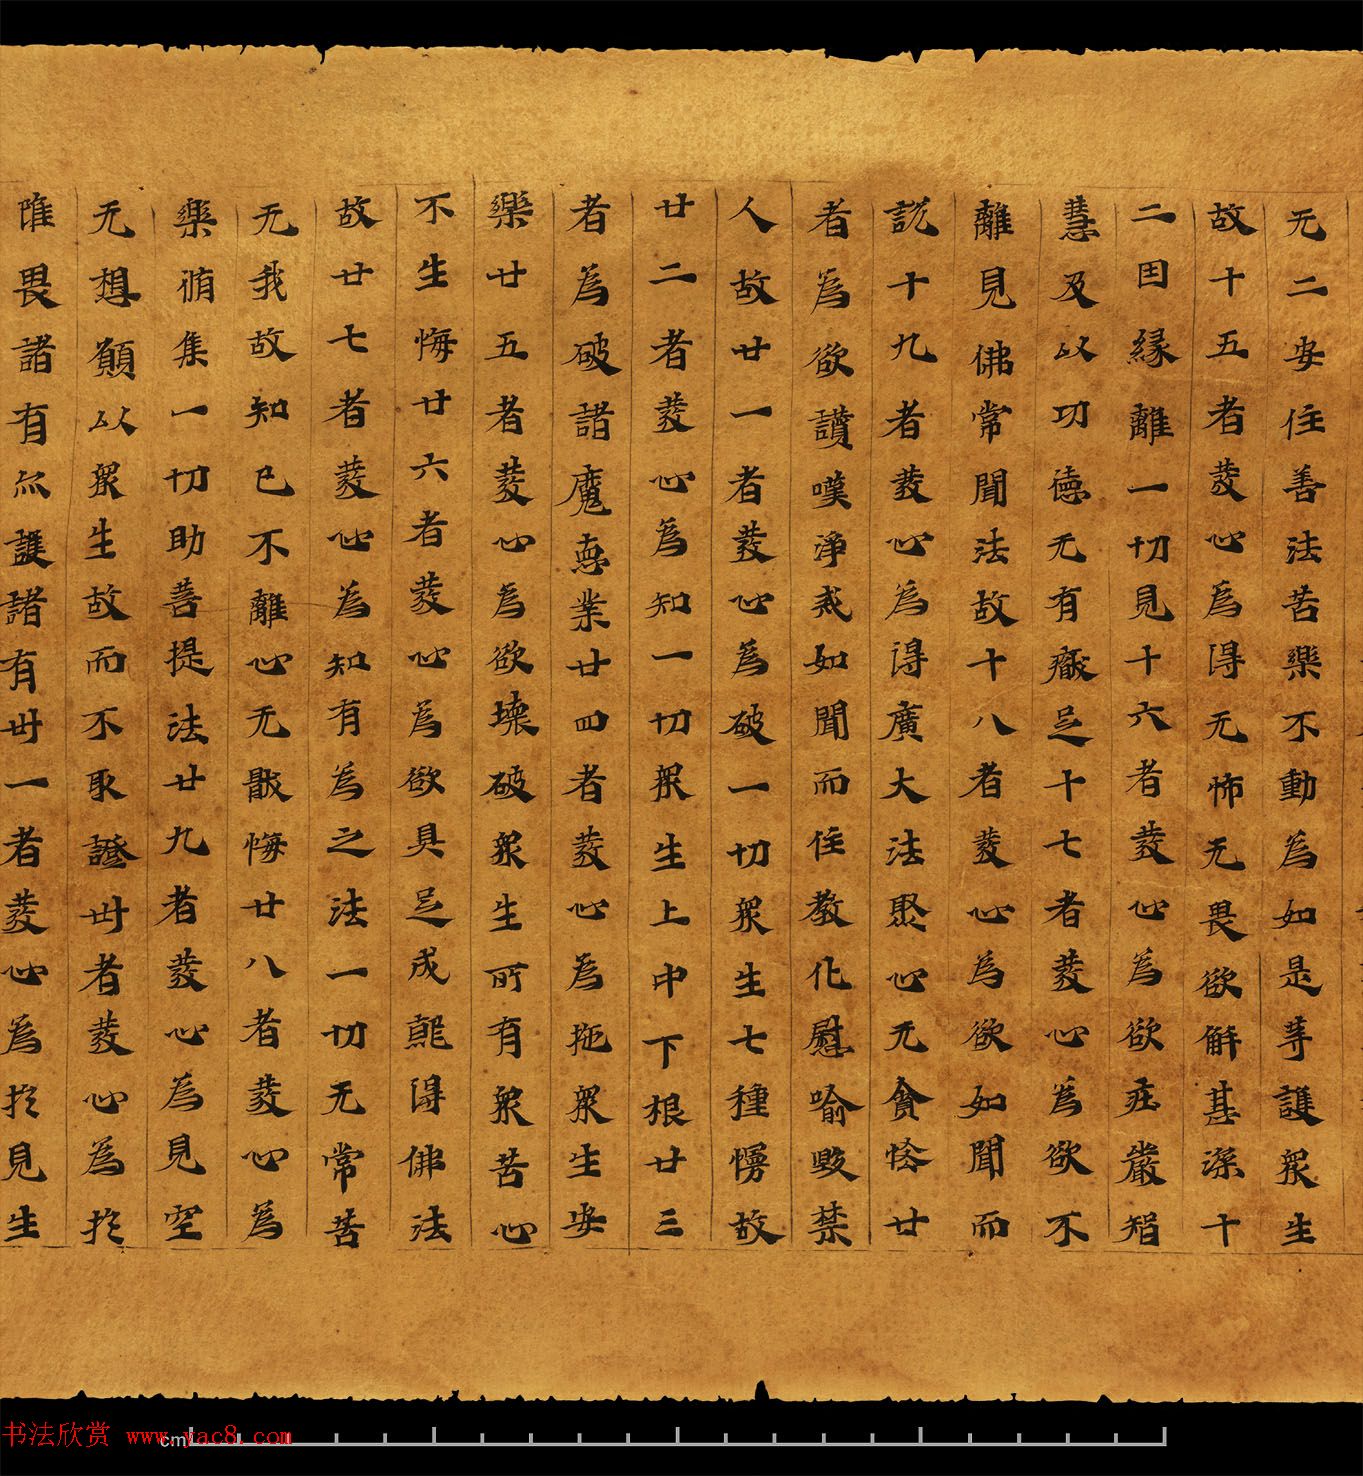 无二安住善法苦樂不動為如是等護眾生
故十五者發心為得无怖无畏欲解甚深十
二因緣離一切見十六者發心為欲庄嚴智
慧及以功德无有厭足十七者發心為欲不
離見佛常聞法故十八者發心為欲如聞而
說十九者發心為得廣大法聚心无貪悋廿
者為欲讚嘆淨戒如聞而住教化慰喻毀禁
人故廿一者發心為破一切眾生七種慢故
廿二者發心為知一切眾生上中下根廿三
者為破諸魔惡業廿四者發心為拖眾生安
樂廿五者發心為欲壞破眾生所有眾苦心
不生悔廿六者發心為欲具足成熊得佛法
故廿七者發心為知有為之法一切无常苦
无我故知已不離心无厭悔廿八者發心為
樂脩集一切助菩提法廿九者發心為見空
无想願以眾生故而不取證卅者發心為於
唯畏諸有亦護諸有卅一者發心為於見生
书法欣赏 www.yac8.com
cm